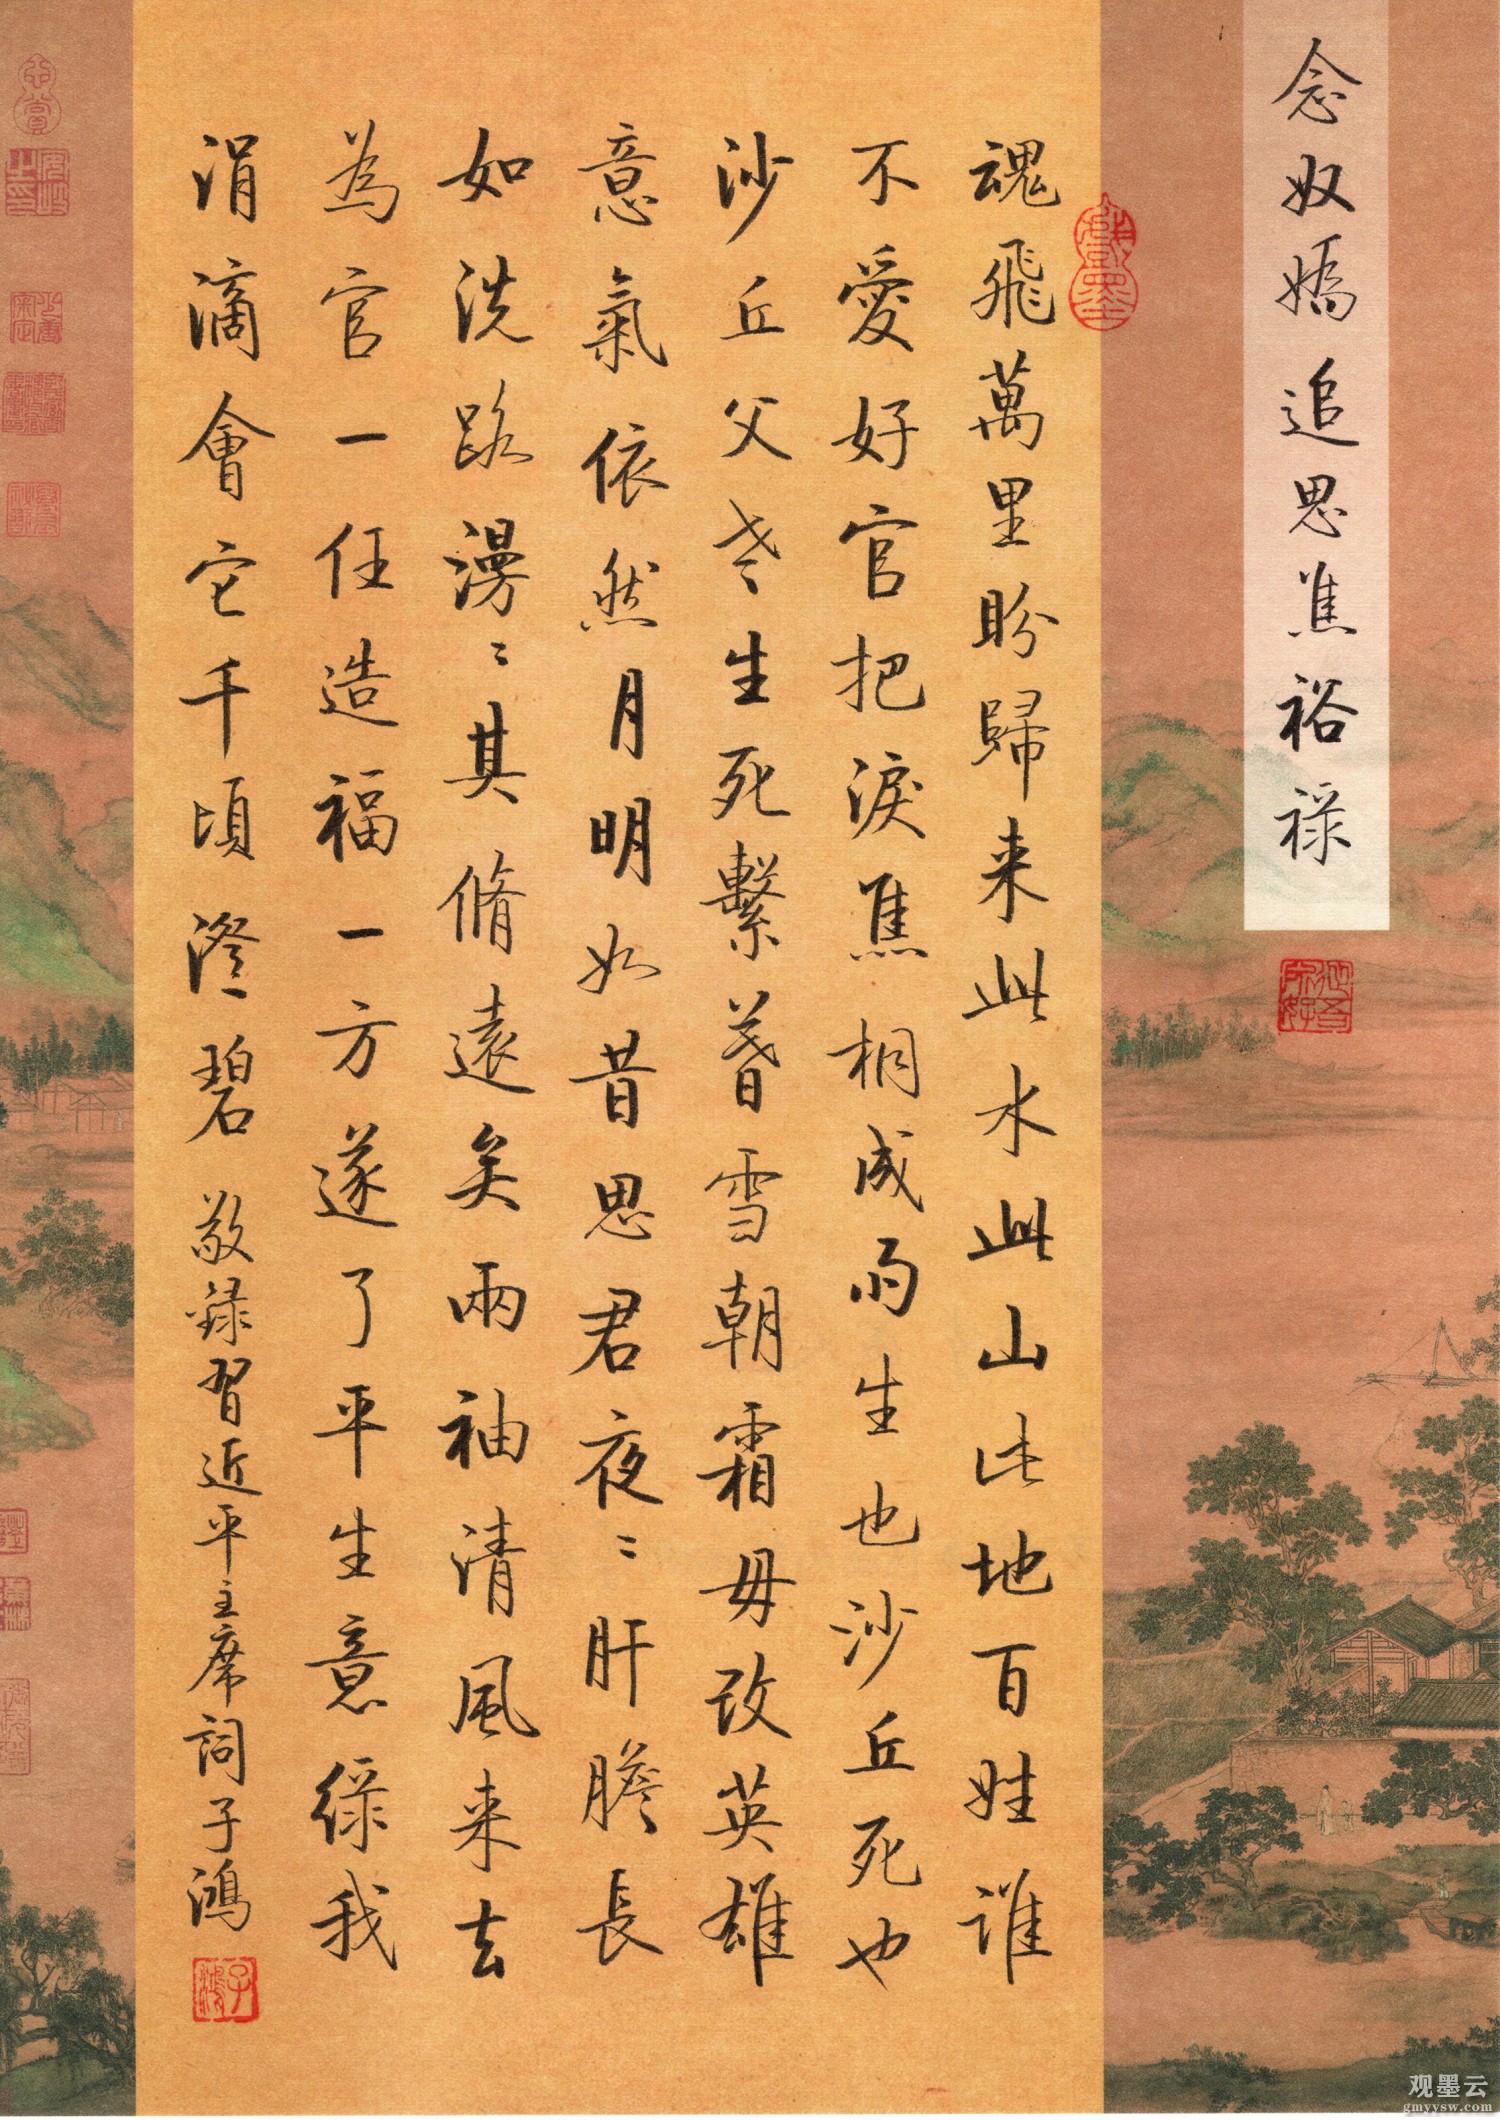 念奴嬌追思焦裕祿
魂飛萬里盼歸来此水此山此地百姓誰
不愛好官把淚焦桐成雨生也沙丘死也
沙丘父老生死繫暮雪朝霜毋改英雄
意氣依然月明如昔思君夜〻肝膽長
如洗路漫〻其脩遠矣兩袖清風来去
為官一任造福一方遂了平生意綠我
涓滴會它千頃澄碧 敬錄習近平主席詞子鴻
子鴻
观墨云
gmyysw.com